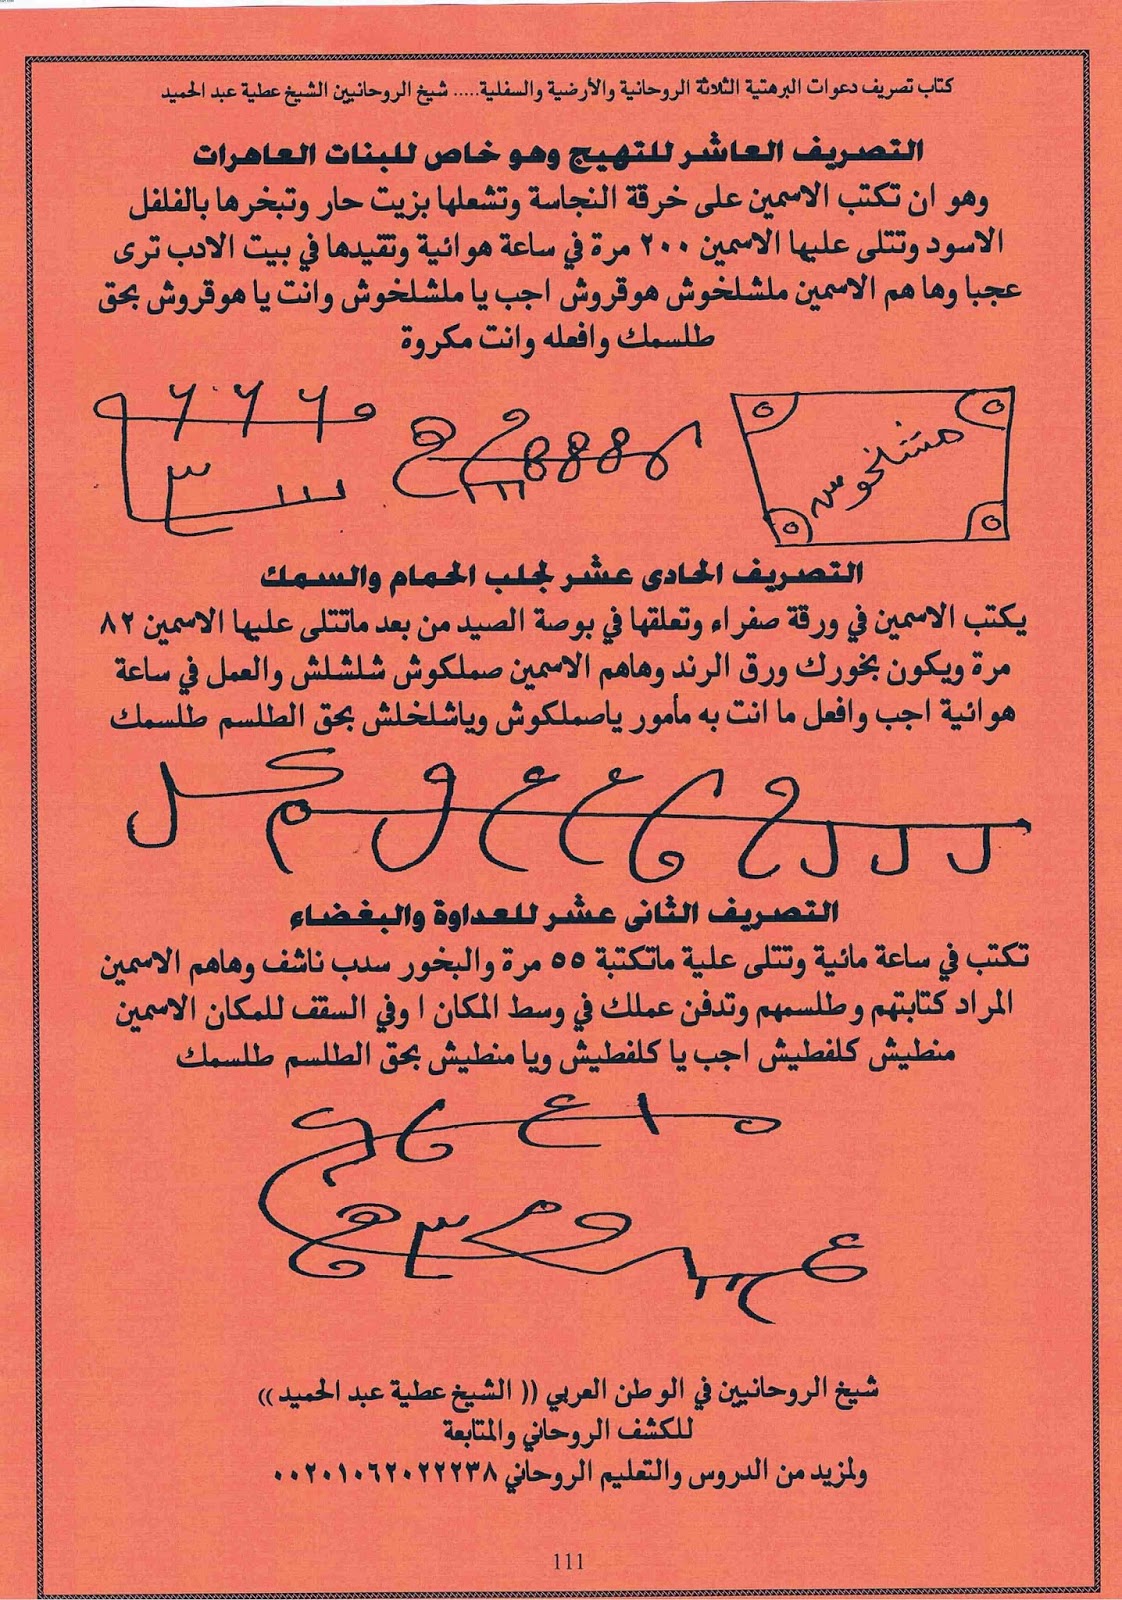 كتاب تصريف دعوات البرهتية الثلاثة الروحانية والأرضية والسفلية..... شيخ الروحانيين الشيخ عطية عبد الحميد
التصريف العاشر للتهيج وهو خاص للبنات العاهرات
وهو ان تكتب الاسمين على خرقة النجاسة وتشعلها بزيت حار وتبخرها بالفلفل
الاسود وتتلى عليها الاسمين ٢٠٠ مرة في ساعة هوائية وتقيدها في بيت الادب ترى
عجبا وها هم الاسمين ملشلخوش هوقروش اجب يا ملشلخوش وانت يا هوقروش بحق
طلسمك وافعله وانت مكروة
التصريف الحادى عشر لجلب الحمام والسمك
يكتب الاسمين في ورقة صفراء وتعلقها في بوصة الصيد من بعد ماتتلى عليها الاسمين ٨٢
مرة ويكون بخورك ورق الرند وهاهم الاسمين صملكوش شلشلش والعمل في ساعة
هوائية اجب وافعل ما انت به مأمور ياصملكوش وياشلخلش بحق الطلسم طلسمك
التصريف الثانى عشر للعداوة والبغضاء
تكتب في ساعة مائية وتتلى علية ماتكتبة ٥٥ مرة والبخور سدب ناشف وهاهم الاسمين
المراد كتابتهم وطلسمهم وتدفن عملك في وسط المكان ا وفي السقف للمكان الاسمين
منطيش كلفطيش اجب يا كلفطيش ويا منطيش بحق الطلسم طلسمك
شيخ الروحانيين في الوطن العربي (( الشيخ عطية عبد الحميد ))
للكشف الروحاني والمتابعة
ولمزيد من الدروس والتعليم الروحاني ٠٠٢٠١٠٦٢٠٢٢٢٣٨
111